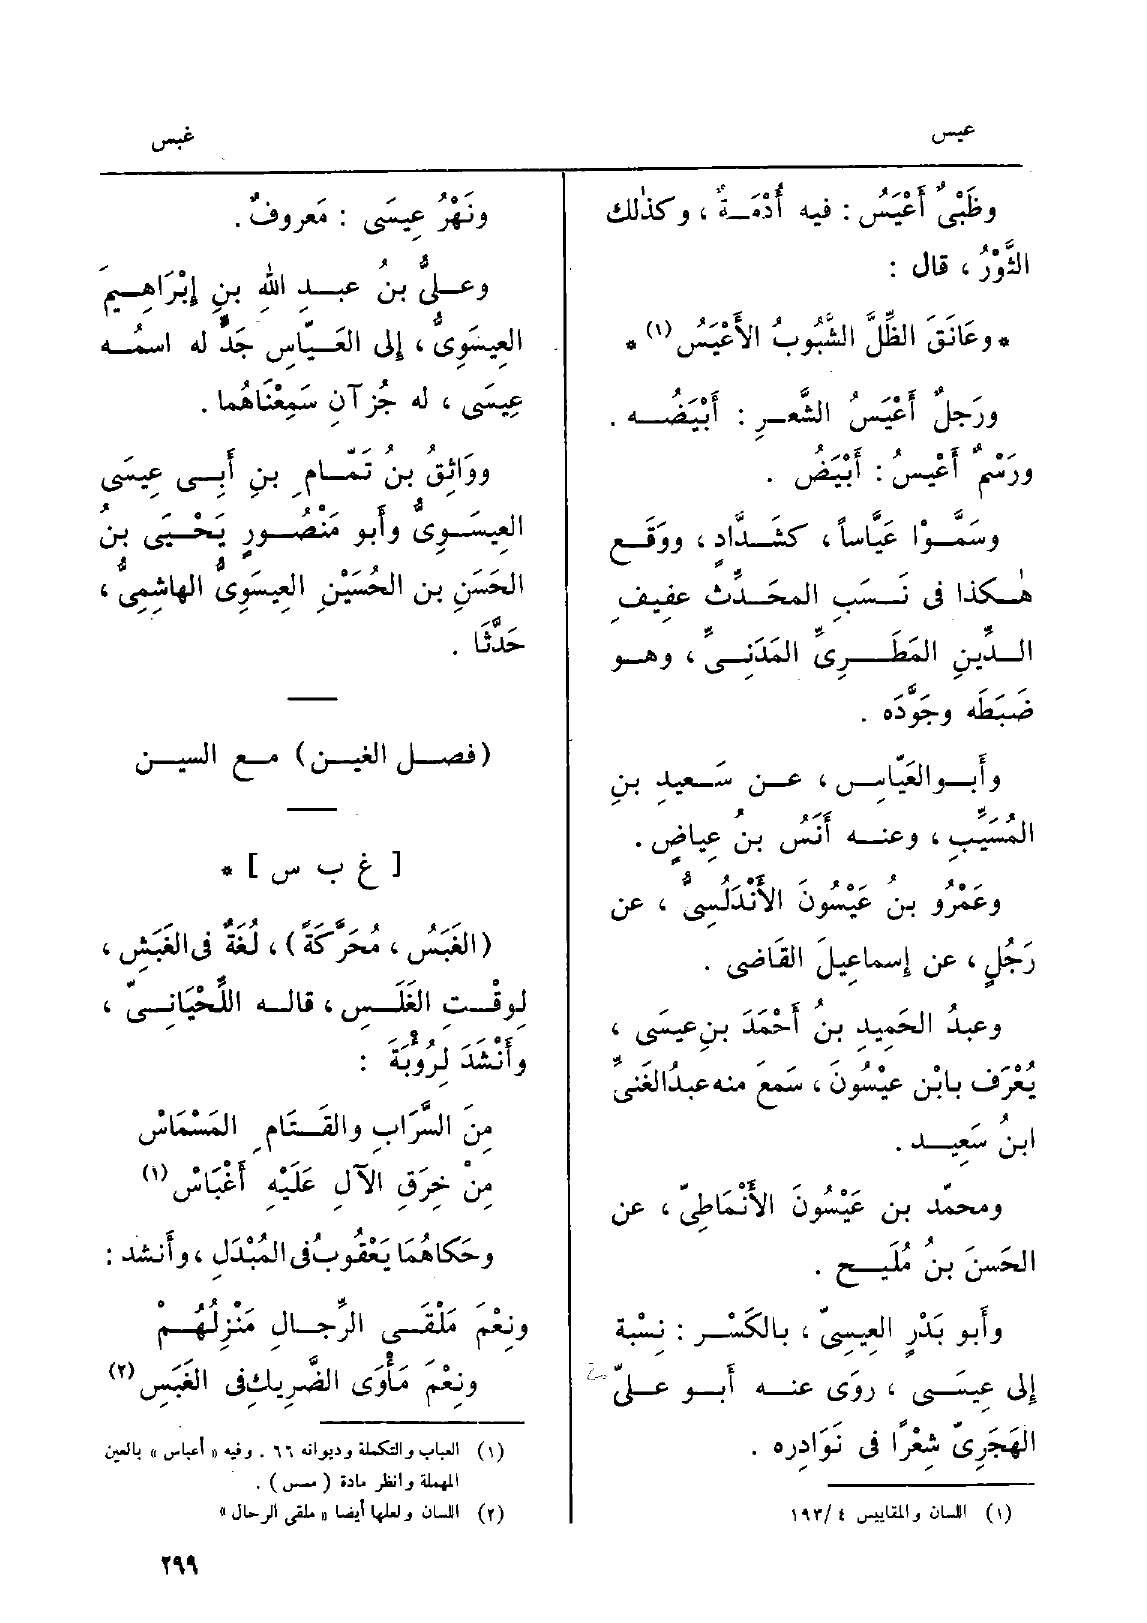 عيس
غبس
وظَبْىٌ أَعْيَسُ : فيه أُدْمَـةٌ ، وكذٰلك
الثَّوْرُ ، قال :
* وعَانَقَ الظِّلَّ الشَّبُوبُ الأَعْيَسُ (١) *
ورَجلٌ أَعْيَسُ الشَّعرِ : أَبْيَضُه .
ورَسْمٌ أَعْيسُ : أَبْيَضُ .
وسَمَّوْا عَيَّاساً ، كشَدَّادٍ ، ووَقَع
هٰكذا فى نَسَبِ المحَدِّث عفِيفِ
الدِّينِ المَطَرِىِّ المَدَنِىِّ ، وهو
ضَبَطَه وجَوَّدَه .
وأَبو العَيّاسِ ، عن سَعِيدِ بنِ
المُسَيِّبِ ، وعنه أَنَسُ بنُ عِياضٍ .
وعَمْرُو بنُ عَيْسُونَ الأَنْدَلُسِىُّ ، عن
رَجُلٍ ، عن إِسماعِيلَ القَاضى .
وعبدُ الحَمِيدِ بنُ أَحْمَدَ بنِ عيسَى ،
يُعْرَف بابْن عيْسُونَ ، سَمعَ منه عبدُ الغَنىِّ
ابنُ سَعِيد .
ومحمّد بن عَيْسُونَ الأَنْمَاطِىّ ، عن
الحَسنَ بنُ مُلَيح .
وأَبو بَدْرٍ العِيسِىّ ، بالكَسْر : نِسْبة
إلى عِيسَى ، روَى عنه أَبو علىّ
الهَجَرِىّ شِعْرًا فى نَوَادِره .
(١) اللسان والمقاييس ٤ /١٩٣
ونَهْرُ عِيسَى : مَعروفٌ .
وعلىُّ بنُ عبدِ اللهِ بنِ إِبْرَاهِيمَ
العِيسَوِىُّ ، إلى العَيّاسِ جَدٌّ له اسمُه
عِيسَى ، له جُزآنِ سَمِعْنَاهُما .
ووَاثِقُ بنُ تَمّامِ بنِ أَبِى عِيسَى
العِيسَوِىُّ وأَبو مَنْصُورٍ يَحْيَى بنُ
الحَسَنِ بن الحُسَيْنِ العِيسَوِىُّ الهاشِمِىُّ ،
حَدَّثَا .
(فصل الغين) مع السين
[ غ ب س ] *
(الغَبَسُ ، مُحَرَّكَةً) ، لُغَةٌ فى الغَبَشِ ،
لِوقْتِ الغَلَسِ ، قاله اللِّحْيَانِىّ ،
وأَنْشَدَ لِرُؤْبَةَ :
مِنَ السَّرَابِ والقَتَامِ المَسْمَاسْ
مِنْ خِرَقِ الآلِ عَلَيْهِ أَغْبَاسْ (١)
وحَكاهُمَا يَعْقُوبُ فى المُبْدَلِ ، وأَنشد :
ونِعْمَ مَلْقَى الرِّجالِ مَنْزِلُهُمْ
ونِعْمَ مَأْوَى الضَّرِيكِ فى الغَبَسِ (٢)
(١) العباب والتكملة وديوانه ٦٦ . وفيه « أعباس » بالعين
المهملة وانظر مادة ( مسس ) .
(٢) اللسان ولعلها أيضا « ملقى الرحال »
٢٩٩